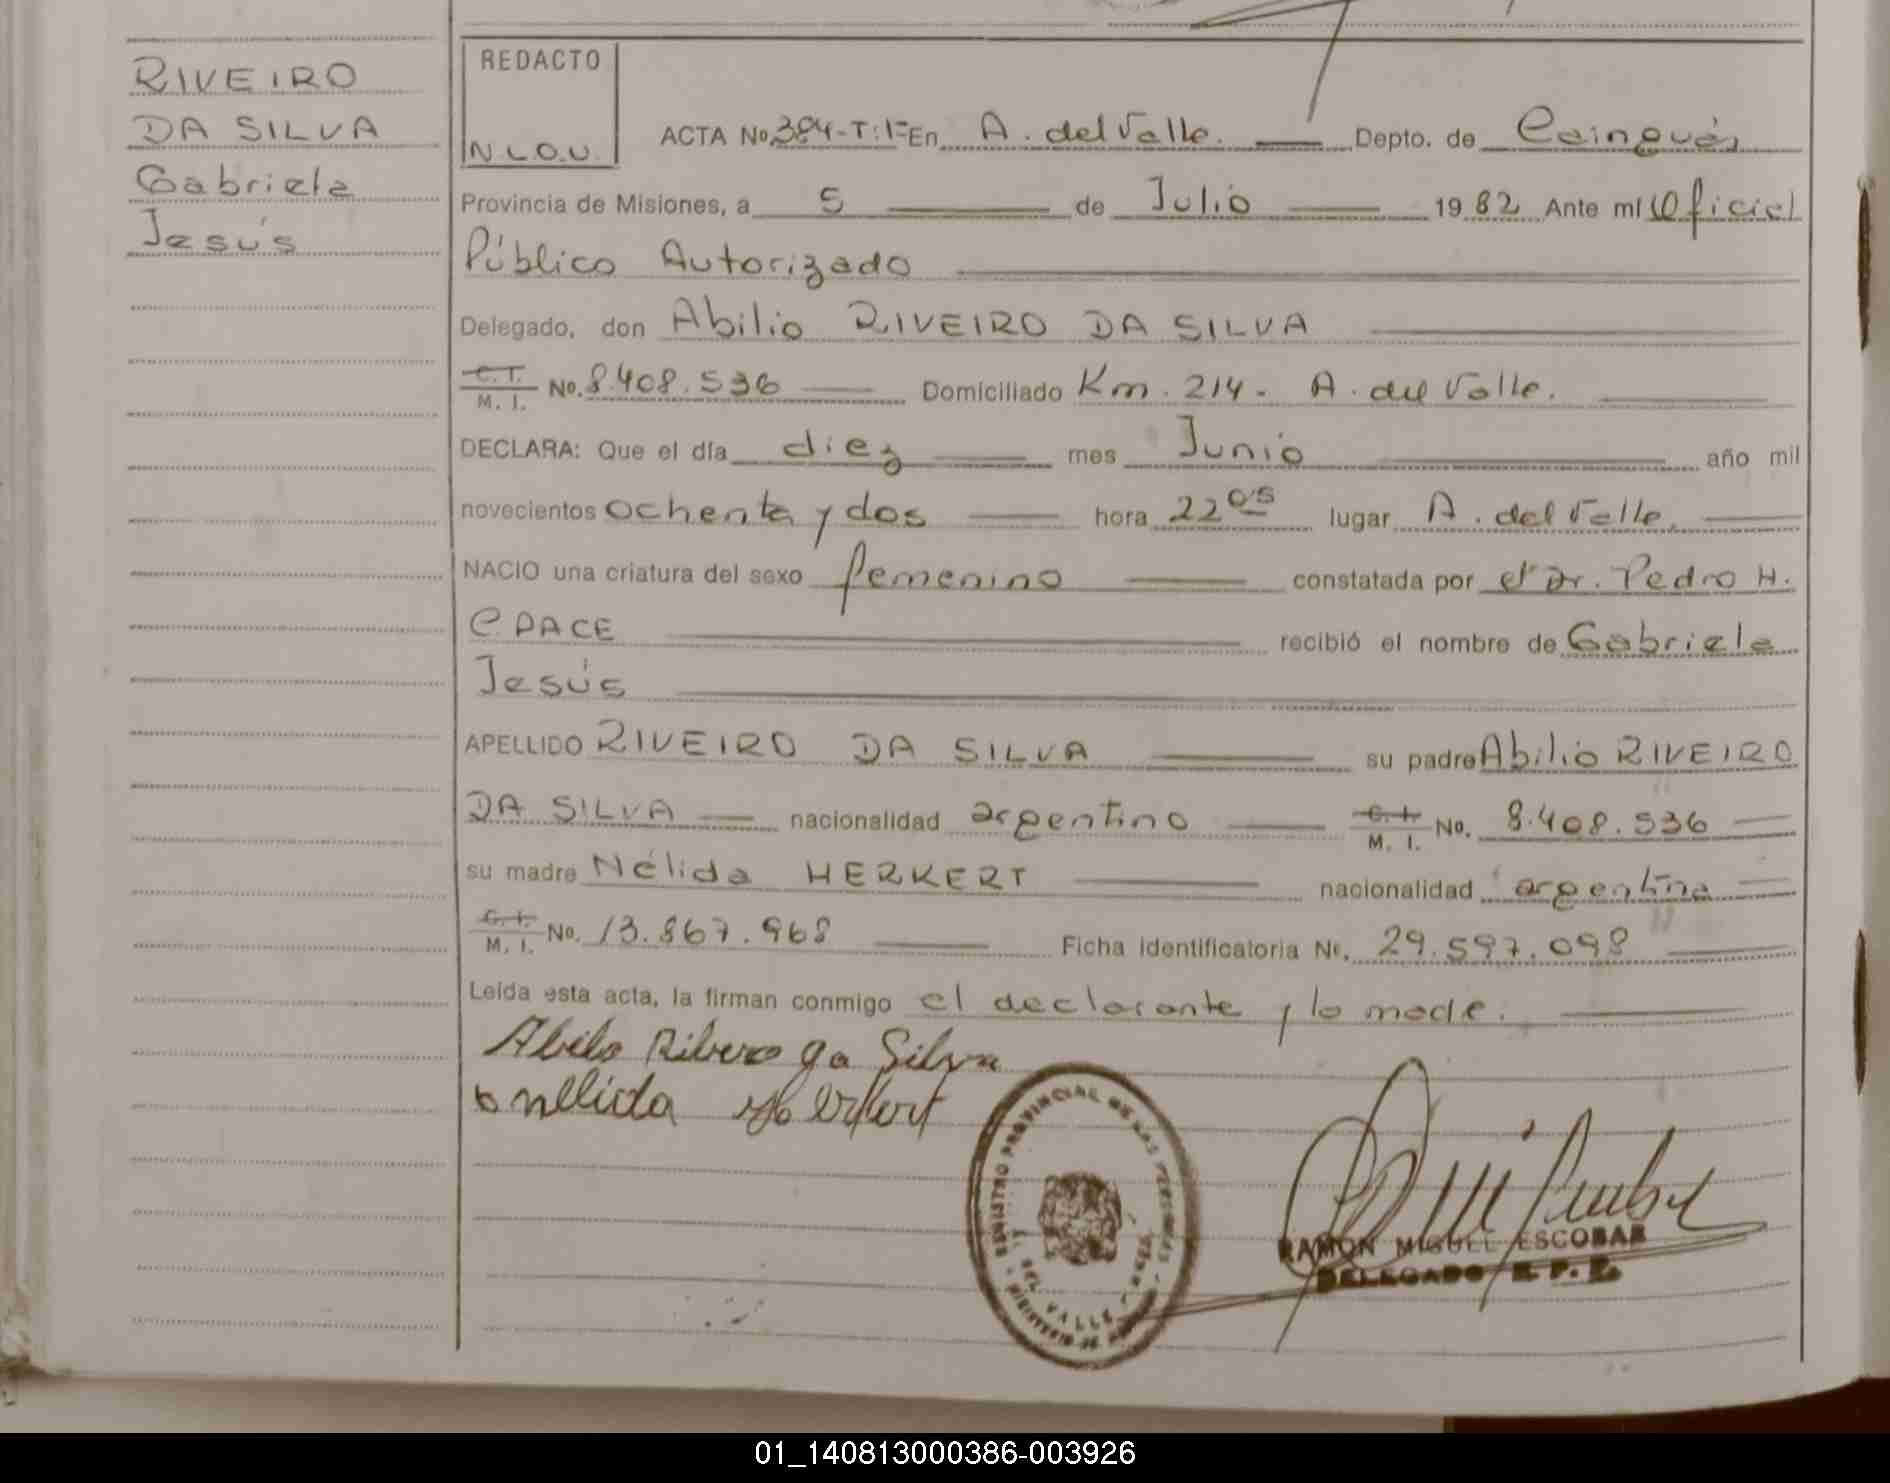 RIVEIRO
DA SILVA
Gabriela
Jesús
REDACTO
N.L.O.U.
ACTA No. 384-T:1= En A. del Valle. Depto. de Cainguás
Provincia de Misiones, a 5 de Julio 1982 Ante mí Oficial
Público Autorizado
Delegado, don Abilio RIVEIRO DA SILVA
C.I. M. I. No. 8.408.536 Domiciliado Km. 214- A. del Valle.
DECLARA: Que el día diez mes Junio año mil
novecientos ochenta y dos hora 22 05 lugar A. del Valle.
NACIO una criatura del sexo femenino constatada por el Dr. Pedro H.
C. PACE recibió el nombre de Gabriela
Jesús
APELLIDO RIVEIRO DA SILVA su padre Abilio RIVEIRO
DA SILVA nacionalidad argentino C.I. M. I. No. 8.408.536
su madre Nélida HERKERT nacionalidad argentina
C.I. M. I. No. 13.867.968 Ficha identificatoria No. 29.597.098
Leída esta acta, la firman conmigo el declarante y la madre.
Abilo Ribero Da Silva
nellida Herkert
REGISTRO PROVINCIAL DE LAS PERSONAS
DEL VALLE
MINISTERIO DE
RAMON MIGUEL ESCOBAR
DELEGADO R. P. P.
01_140813000386-003926